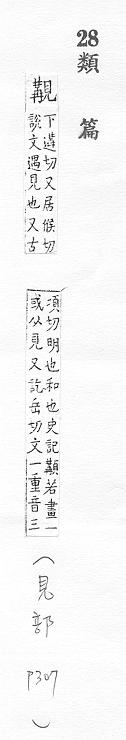 28 類篇
覯
下遘切又居候切
說文遇見也又古
項切明也和也史記顜若畫一
或从見又訖岳切文一重音三
(見部 P307)